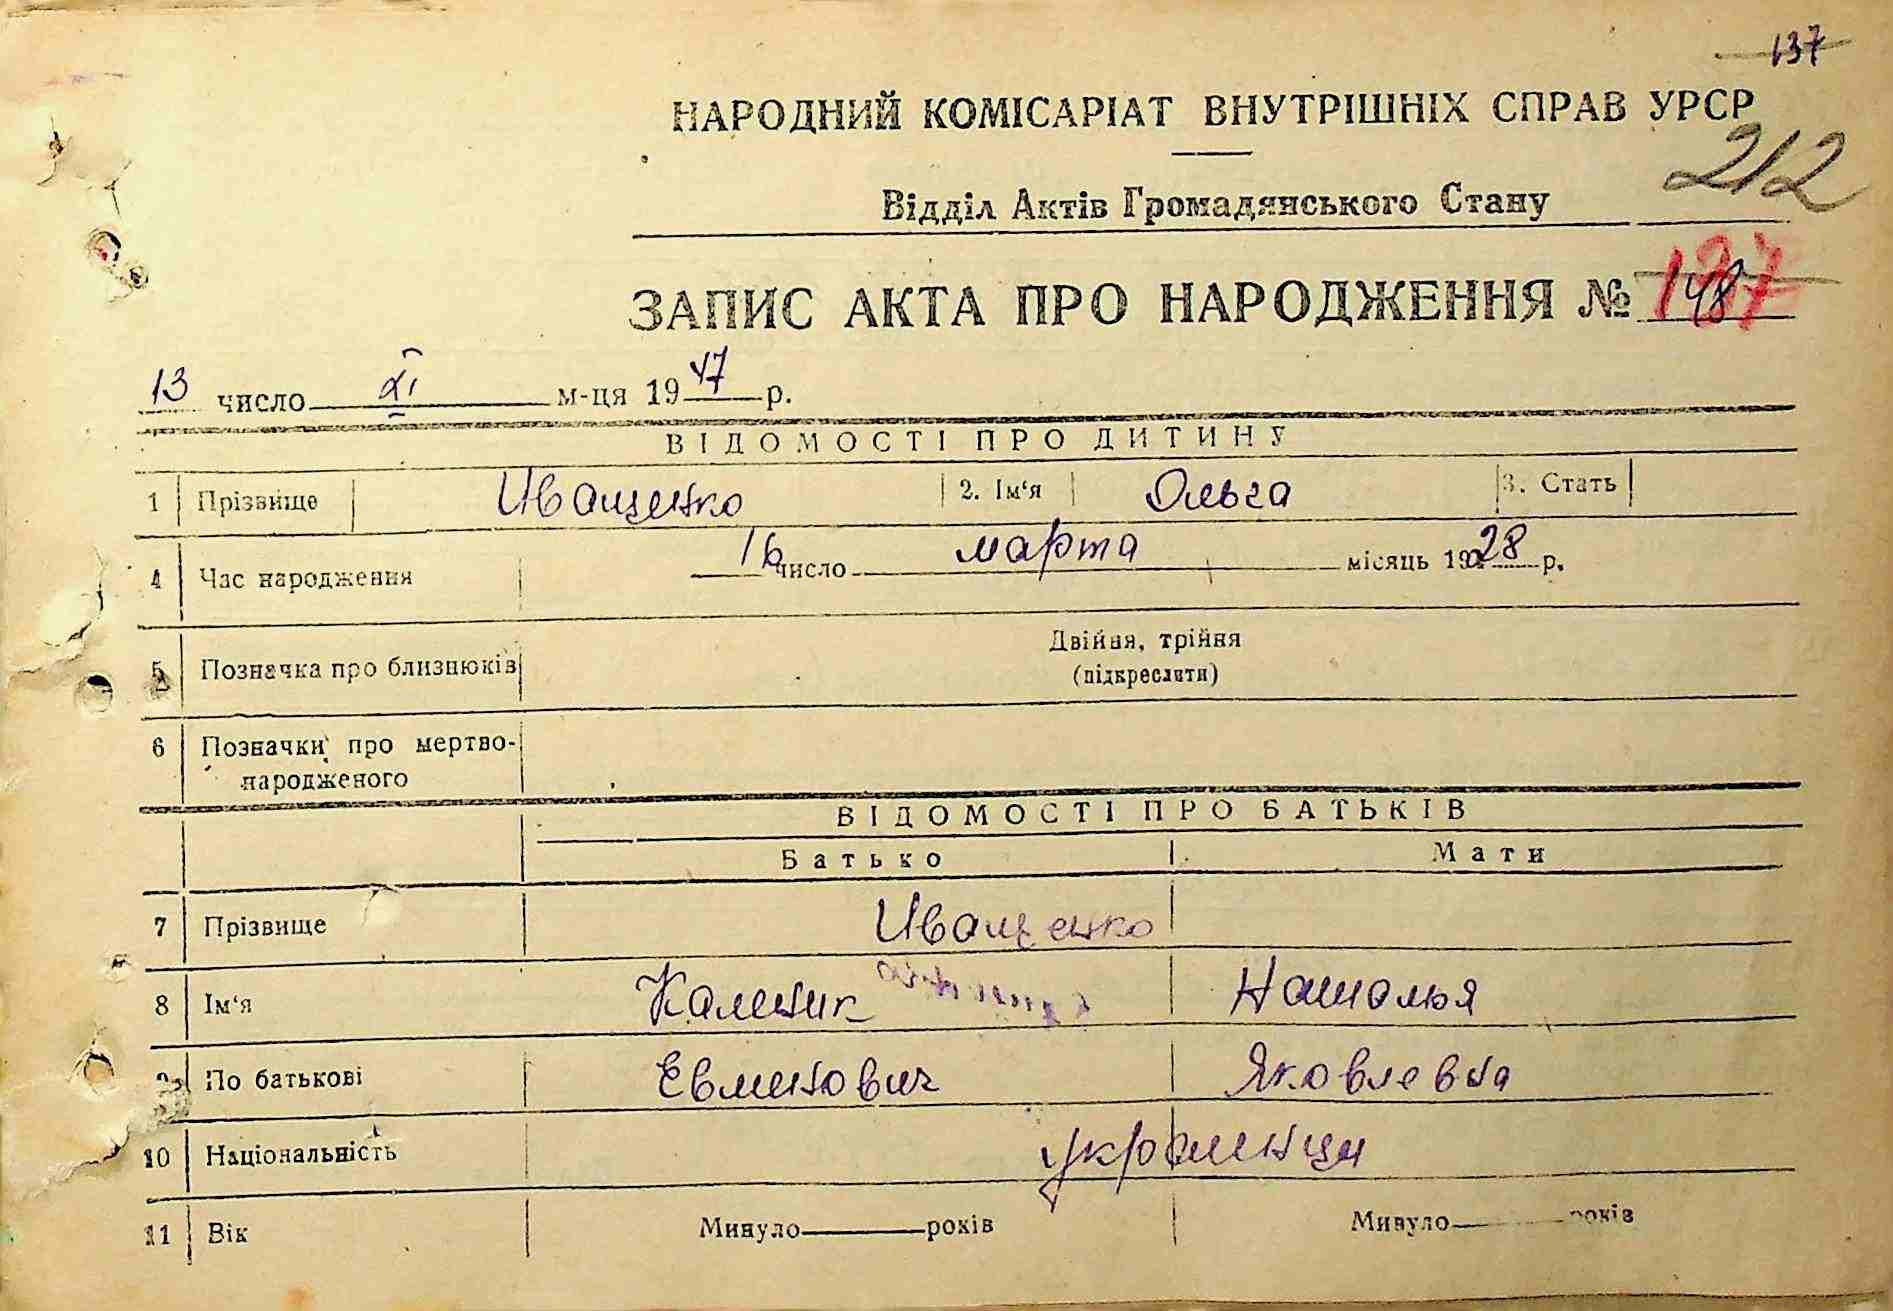 137
НАРОДНИЙ КОМІСАРІАТ ВНУТРІШНІХ СПРАВ УРСР
212
Відділ Актів Громадянського Стану
ЗАПИС АКТА ПРО НАРОДЖЕННЯ № 148
13 число XI м-ця 1947 р.
ВІДОМОСТІ ПРО ДИТИНУ
1 Прізвище Иващенко 2. Ім'я Ольга 3. Стать
4 Час народження 16 число марта місяць 1928 р.
5 Позначка про близнюків Двійня, трійня
(підкреслити)
6 Позначки про мертво-
народженого
ВІДОМОСТІ ПРО БАТЬКІВ
Батько Мати
7 Прізвище Иващенко
8 Ім'я Калиник Наталья
9 По батькові Евминович Яковлевна
10 Національність украинцы
11 Вік Минуло років Минуло років